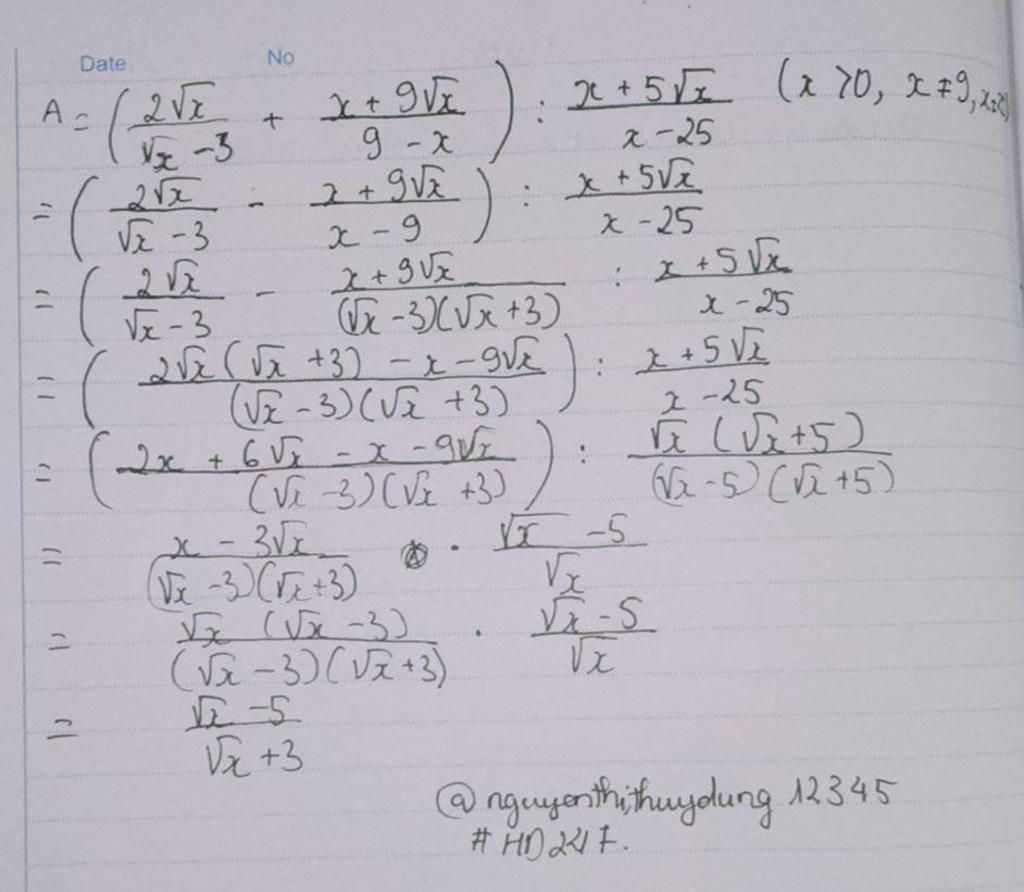 Date No
A = ( 2√x / √x - 3 + x + 9√x / 9 - x ) : x + 5√x / x - 25 (x > 0, x ≠ 9,
= ( 2√x / √x - 3 - x + 9√x / x - 9 ) : x + 5√x / x - 25
= ( 2√x / √x - 3 - x + 9√x / (√x - 3)(√x + 3) : x + 5√x / x - 25
= ( 2√x (√x + 3) - x - 9√x / (√x - 3)(√x + 3) ) : x + 5√x / x - 25
= ( 2x + 6√x - x - 9√x / (√x - 3)(√x + 3) ) : √x (√x + 5) / (√x - 5)(√x + 5)
= x - 3√x / (√x - 3)(√x + 3) . √x - 5 / √x
= √x (√x - 3) / (√x - 3)(√x + 3) . √x - 5 / √x
= √x - 5 / √x + 3
@nguyenthithuydung 12345
# HD247.